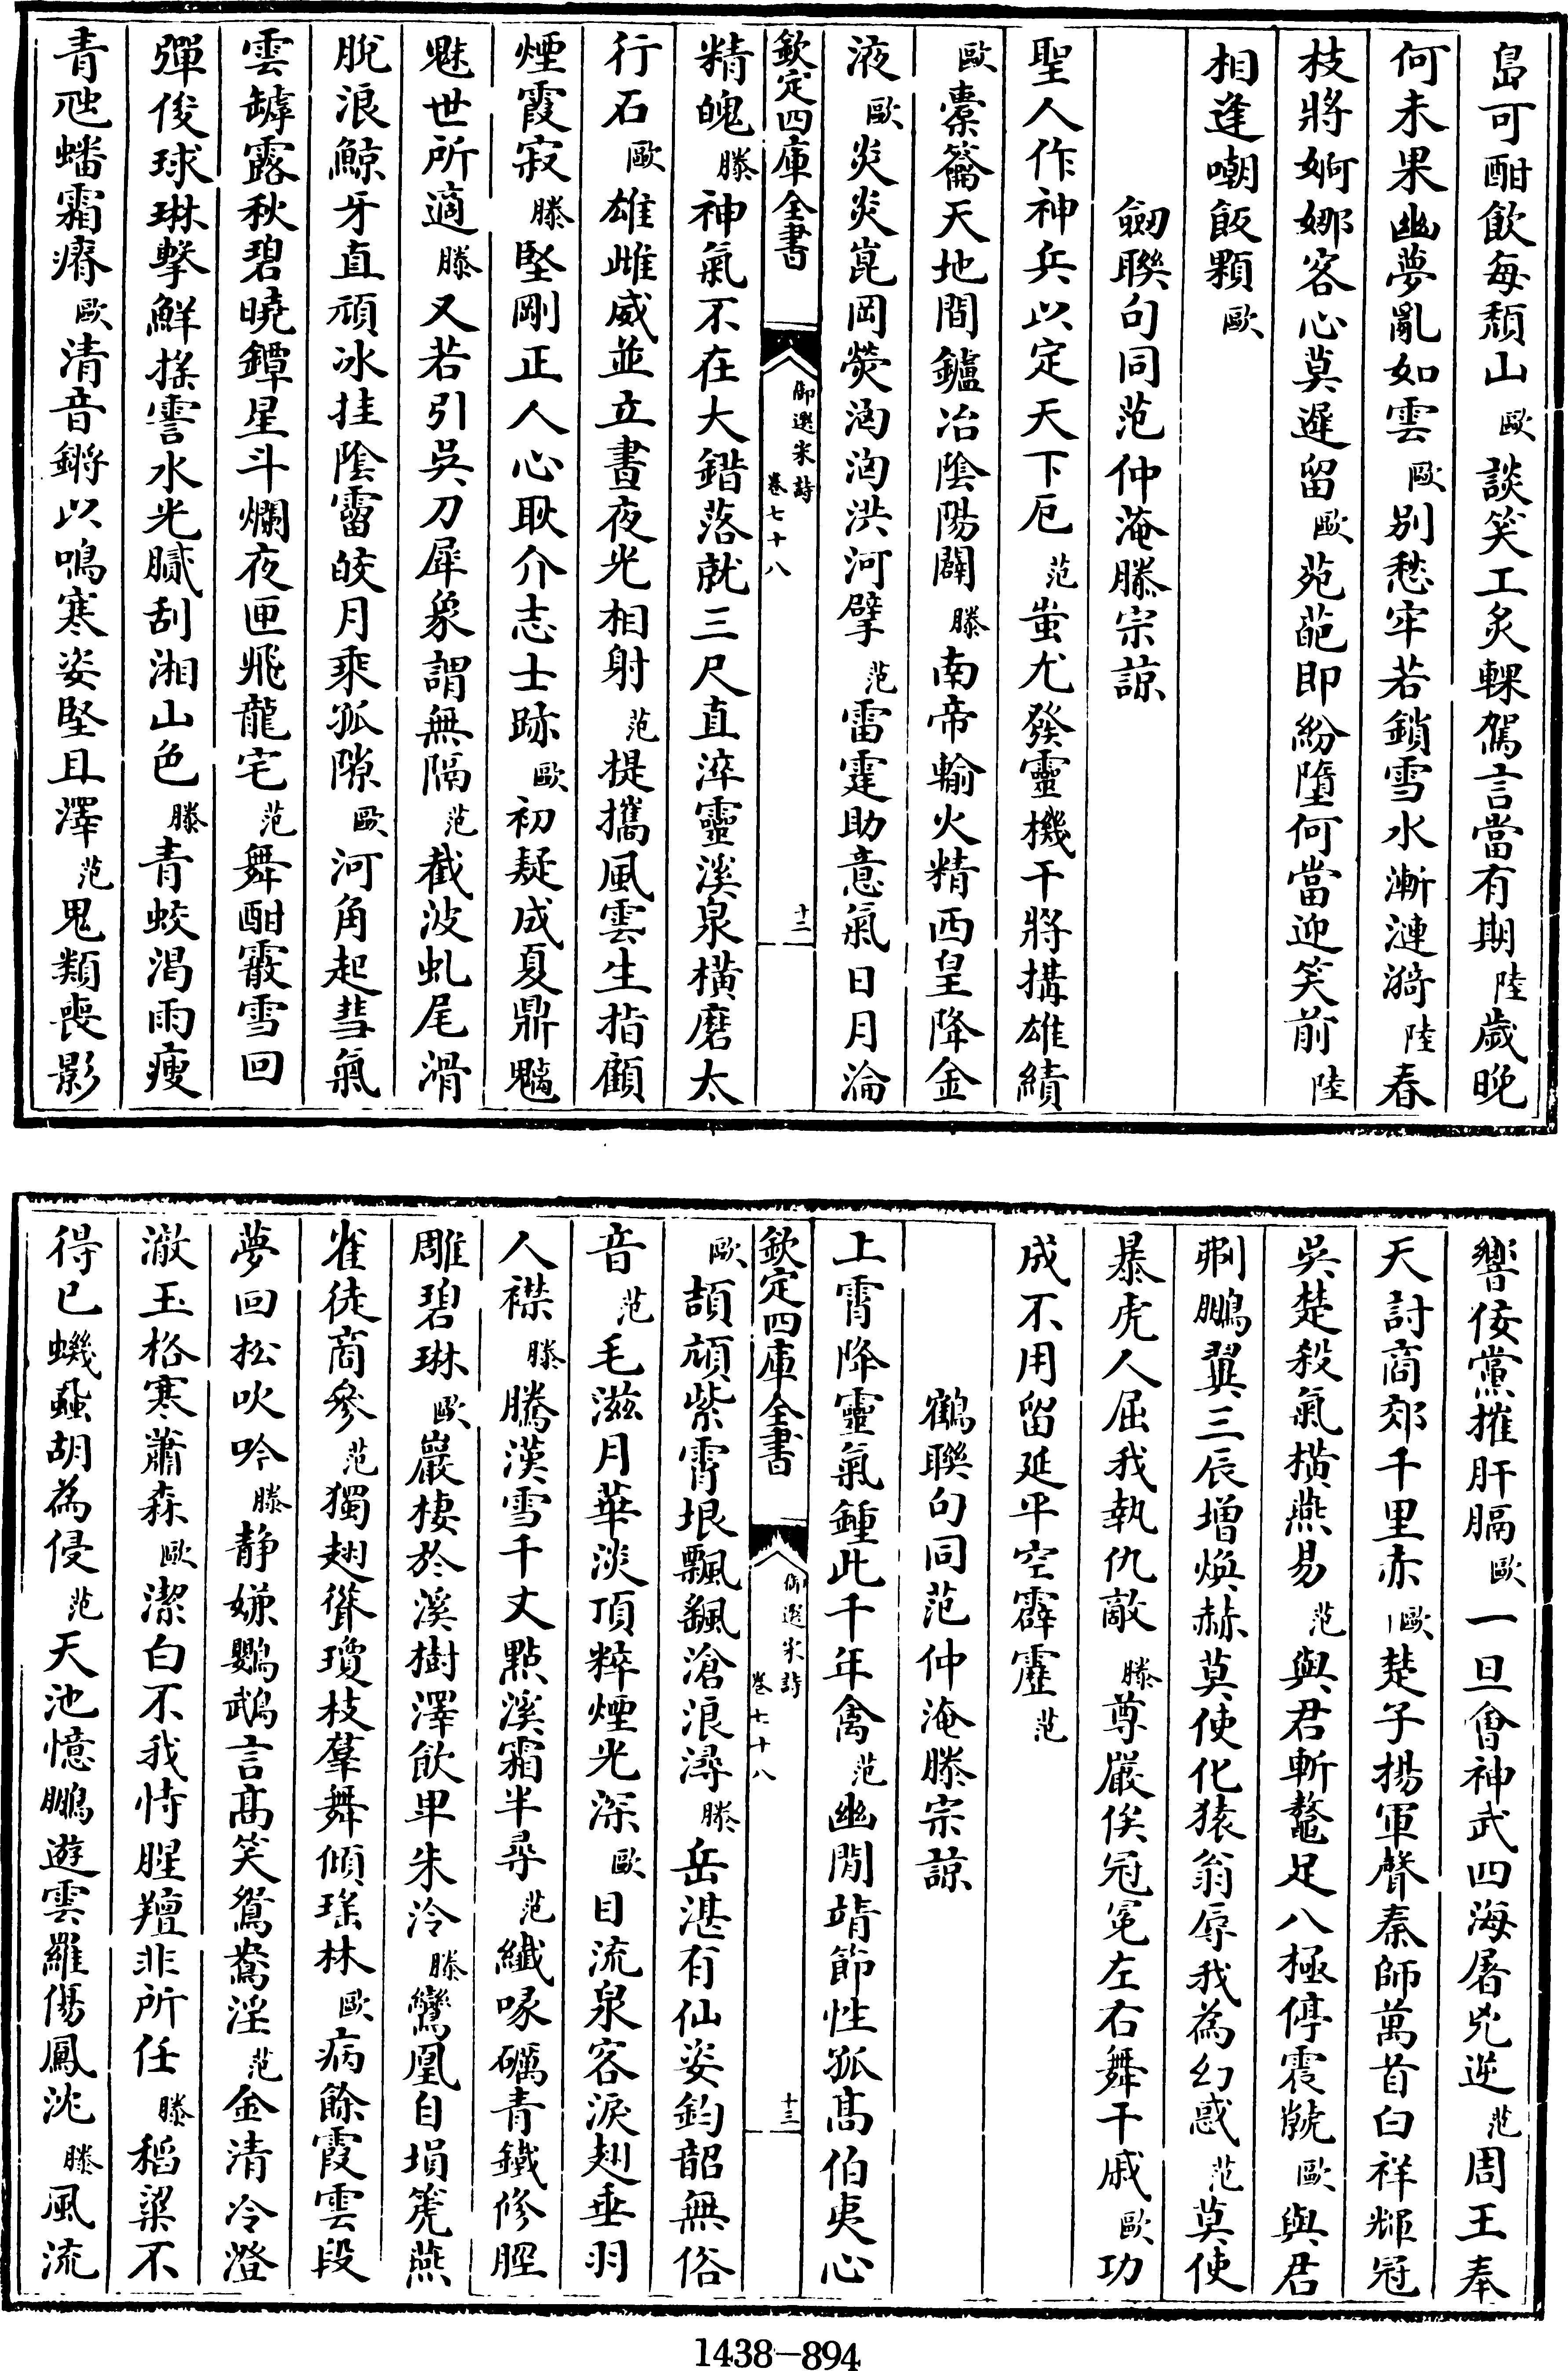 島可酣飲每頹山歐談笑工炙輠駕言當有期陸歲晚
何未果幽夢亂如雲歐別愁牢若鎖雪水漸漣漪陸春
枝將婀娜客心莫遲留歐苑葩即紛墮何當迎笑前陸
相逢嘲飯顆歐
劒聯句同范仲淹滕宗諒
聖人作神兵以定天下厄范蚩尤發靈機干將搆雄績
歐橐籥天地間鑪冶陰陽闢滕南帝輸火精西皇降金
液歐炎炎崑岡熒洶洶洪河擘范雷霆助意氣日月淪
欽定四庫全書
御選宋詩
卷七十八
十二
精魄滕神氣不在大錯落就三尺直淬靈溪泉橫磨太
行石歐雄雌威並立晝夜光相射范提攜風雲生指顧
煙霞寂滕堅剛正人心耿介志士跡歐初疑成夏鼎魑
魅世所適滕又若引吳刀犀象謂無隔范截波虬尾滑
脫浪鯨牙直頑冰挂陰霤皎月乘孤隙歐河角起彗氣
雲罅露秋碧曉鐔星斗爛夜匣飛龍宅范舞酣霰雪回
彈俊球琳擊鮮搽霅水光膩刮湘山色滕青蛟渴雨瘦
青虺蟠霜瘠歐清音鏘以鳴寒姿堅且澤范鬼類喪影
響佞黨摧肝膈歐一旦會神武四海屠兇逆范周王奉
天討商郊千里赤歐楚子揚軍聲秦師萬首白祥輝冠
吳楚殺氣橫燕易范與君斬鼇足八極停震虩歐與君
刜鵬翼三辰增煥赫莫使化猿翁辱我為幻惑范莫使
暴虎人屈我執仇敵滕尊嚴俟冠冕左右舞干戚歐功
成不用留延平空霹靂范
鶴聯句同范仲淹滕宗諒
上霄降靈氣鍾此千年禽范幽閒靖節性孤髙伯夷心
欽定四庫全書
御選宋詩
卷七十八
十三
歐頡頏紫霄垠飄飖滄浪潯滕岳湛有仙姿鈞韶無俗
音范毛滋月華淡頂粹煙光深歐目流泉客淚翅垂羽
人襟滕騰漢雪千丈點溪霜半尋范纖喙礪青鐵修脛
雕碧琳歐巖棲於溪樹澤飲卑朱泠滕鸞凰自塤箎燕
雀徒商參范獨翅聳瓊枝羣舞傾瑤林歐病餘霞雲段
夢回松吹吟滕靜嫌鸚鵡言髙笑鴛鴦淫范金清冷澄
澈玉格寒蕭森歐潔白不我恃腥羶非所任滕稻粱不
得已蟣蝨胡為侵范天池憶鵬遊雲羅傷鳳沈滕風流
1438-894